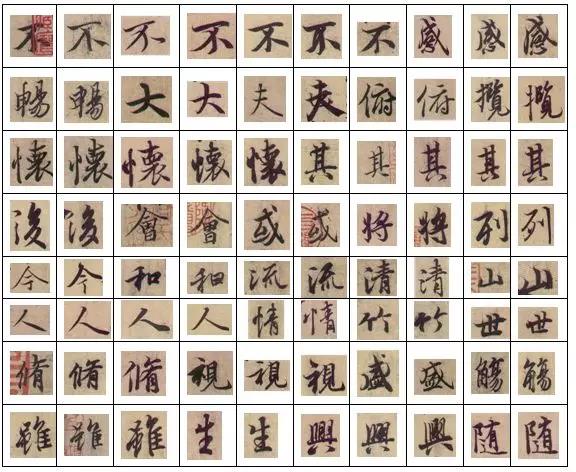 不不不不不不不感感感
暢暢大大夫夫俯俯攬攬
懷懷懷懷懷其其其其其
後後會會或或將將列列
今今和和流流清清山山
人人人人情情竹竹世世
脩脩脩視視視盛盛觴觴
雖雖雖生生興興興随随